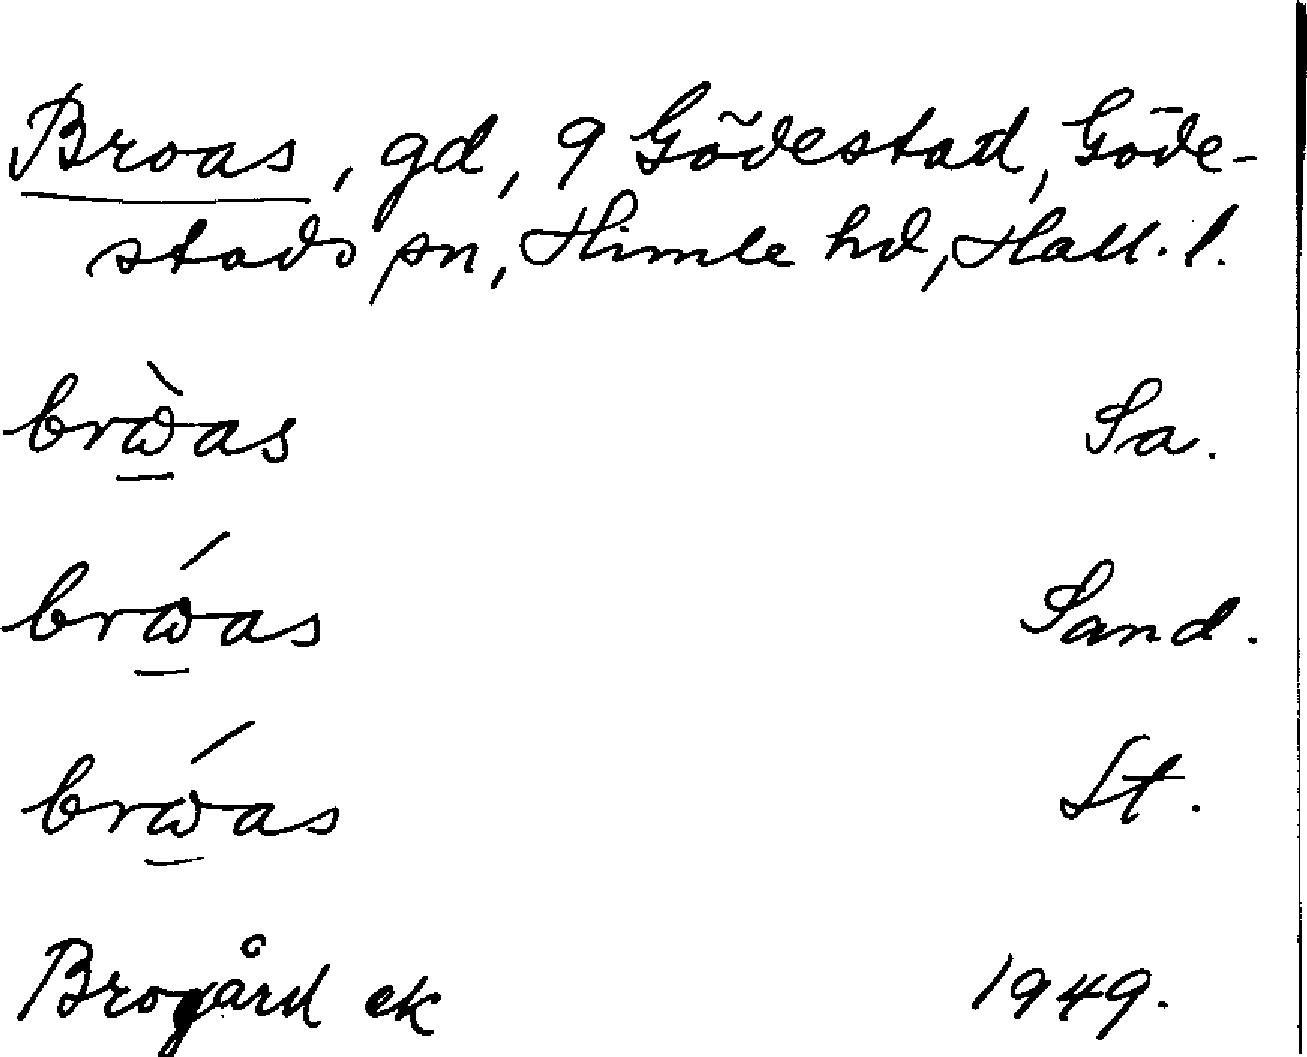 Broas, gd, 9 Gödestad, Göde-
stads sn, Himle hd, Hall. l.
brὼ̲as Sa.
brώ̲as Sand.
brώ̲as St.
Brogård ek 1949.